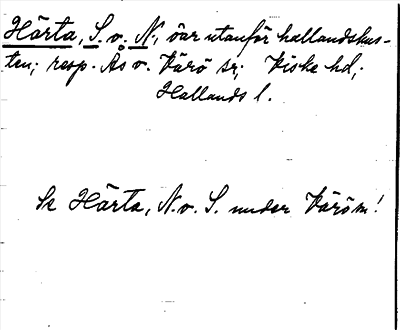 Härta, S. o. N., öar utanför hallandskus-
ten; resp. Ås o. Värö sr; Viske hd,
Hallands l.
Se Härta, N. o. S. under Värö sn!